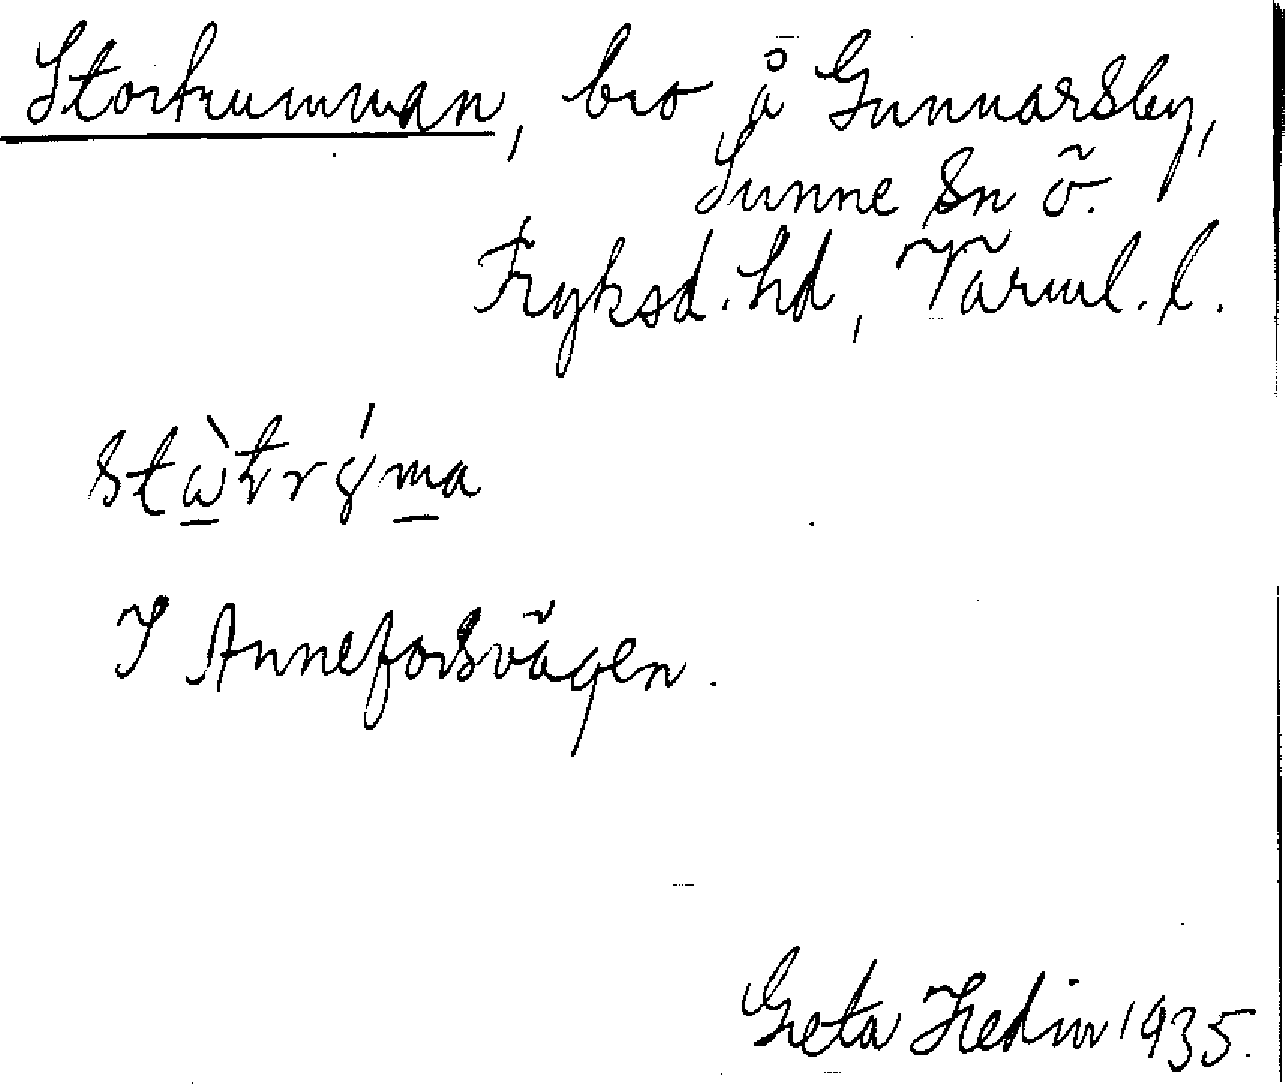 Stortrumman, bro å Gunnarsby,
Sunne sn ö.
Fryksd. hd, Värml. l.
I Anneforsvägen.
Greta Hedin 1935.